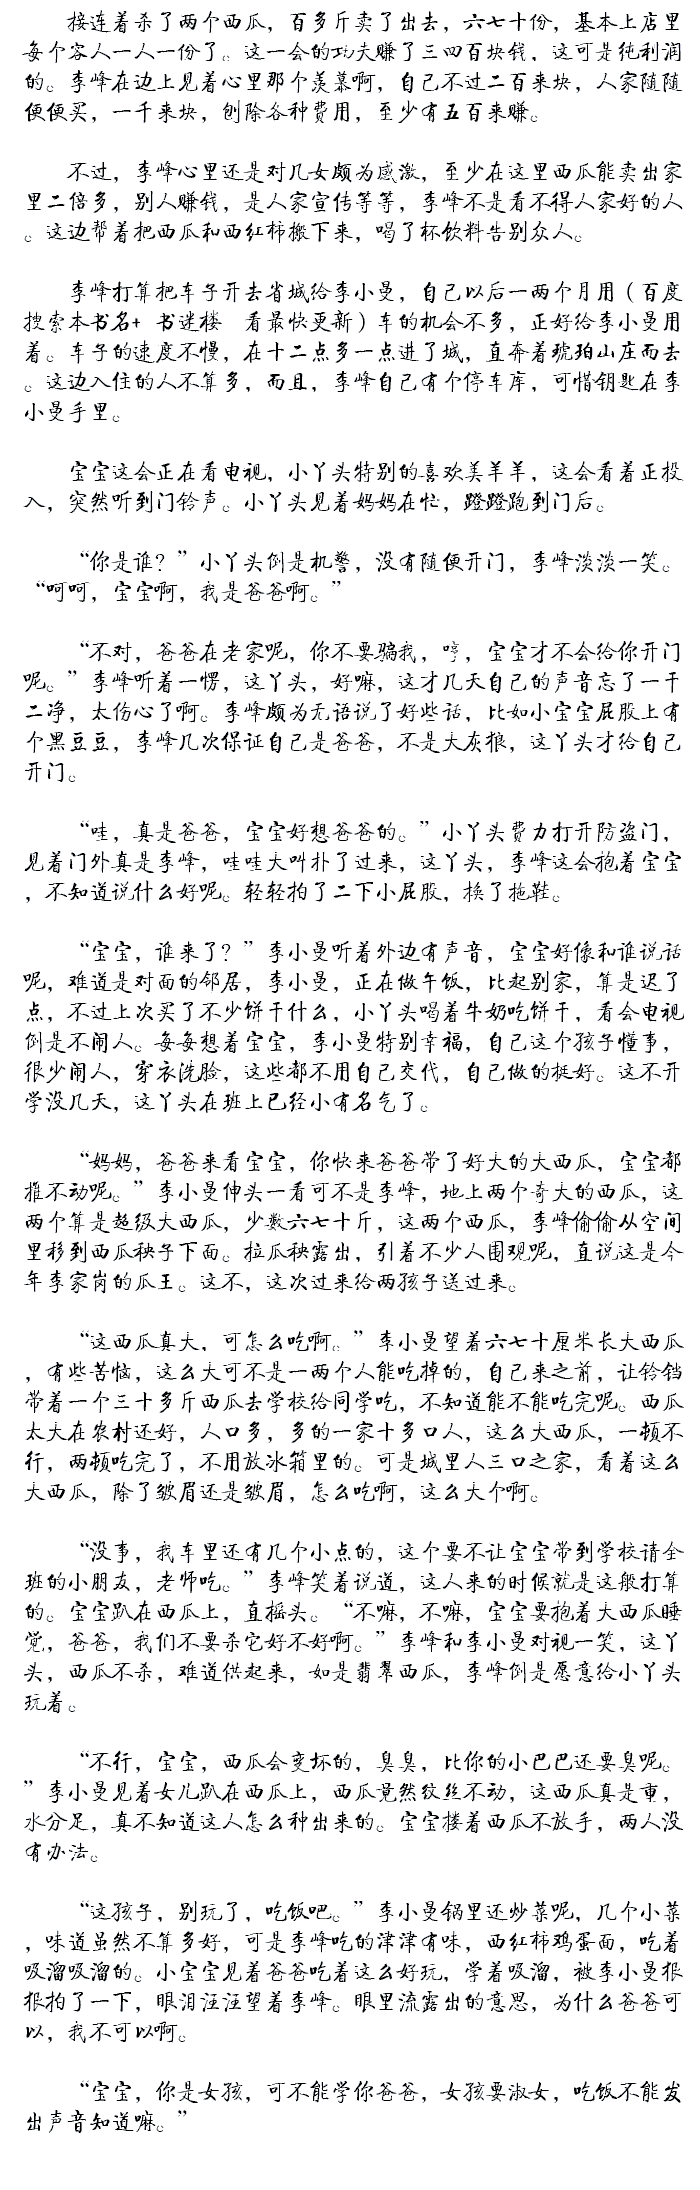 接连着杀了两个西瓜，百多斤卖了出去，六七十份，基本上店里
每个客人一人一份了。这一会的功夫赚了三四百块钱，这可是纯利润
的。李峰在边上见着心里那个羡慕啊，自己不过二百来块，人家随随
便便买，一千来块，刨除各种费用，至少有五百来赚。
不过，李峰心里还是对几女颇为感激，至少在这里西瓜能卖出家
里二倍多，别人赚钱，是人家宣传等等，李峰不是看不得人家好的人
。这边帮着把西瓜和西红柿搬下来，喝了杯饮料告别众人。
李峰打算把车子开去省城给李小曼，自己以后一两个月用（百度
搜索本书名+ 书迷楼 看最快更新）车的机会不多，正好给李小曼用
着。车子的速度不慢，在十二点多一点进了城，直奔着琥珀山庄而去
。这边入住的人不算多，而且，李峰自己有个停车库，可惜钥匙在李
小曼手里。
宝宝这会正在看电视，小丫头特别的喜欢美羊羊，这会看着正投
入，突然听到门铃声。小丫头见着妈妈在忙，蹬蹬跑到门后。
“你是谁？”小丫头倒是机警，没有随便开门，李峰淡淡一笑。
“呵呵，宝宝啊，我是爸爸啊。”
“不对，爸爸在老家呢，你不要骗我，哼，宝宝才不会给你开门
呢。”李峰听着一愣，这丫头，好嘛，这才几天自己的声音忘了一干
二净，太伤心了啊。李峰颇为无语说了好些话，比如小宝宝屁股上有
个黑豆豆，李峰几次保证自己是爸爸，不是大灰狼，这丫头才给自己
开门。
“哇，真是爸爸，宝宝好想爸爸的。”小丫头费力打开防盗门，
见着门外真是李峰，哇哇大叫扑了过来，这丫头，李峰这会抱着宝宝
，不知道说什么好呢。轻轻拍了二下小屁股，换了拖鞋。
“宝宝，谁来了？”李小曼听着外边有声音，宝宝好像和谁说话
呢，难道是对面的邻居，李小曼，正在做午饭，比起别家，算是迟了
点，不过上次买了不少饼干什么，小丫头喝着牛奶吃饼干，看会电视
倒是不闹人。每每想着宝宝，李小曼特别幸福，自己这个孩子懂事，
很少闹人，穿衣洗脸，这些都不用自己交代，自己做的挺好。这不开
学没几天，这丫头在班上已经小有名气了。
“妈妈，爸爸来看宝宝，你快来爸爸带了好大的大西瓜，宝宝都
推不动呢。”李小曼伸头一看可不是李峰，地上两个奇大的西瓜，这
两个算是超级大西瓜，少数六七十斤，这两个西瓜，李峰偷偷从空间
里移到西瓜秧子下面。拉瓜秧露出，引着不少人围观呢，直说这是今
年李家岗的瓜王。这不，这次过来给两孩子送过来。
“这西瓜真大，可怎么吃啊。”李小曼望着六七十厘米长大西瓜
，有些苦恼，这么大可不是一两个人能吃掉的，自己来之前，让铃铛
带着一个三十多斤西瓜去学校给同学吃，不知道能不能吃完呢。西瓜
太大在农村还好，人口多，多的一家十多口人，这么大西瓜，一顿不
行，两顿吃完了，不用放冰箱里的。可是城里人三口之家，看着这么
大西瓜，除了皱眉还是皱眉，怎么吃啊，这么大个啊。
“没事，我车里还有几个小点的，这个要不让宝宝带到学校请全
班的小朋友，老师吃。”李峰笑着说道，这人来的时候就是这般打算
的。宝宝趴在西瓜上，直摇头。“不嘛，不嘛，宝宝要抱着大西瓜睡
觉，爸爸，我们不要杀它好不好啊。”李峰和李小曼对视一笑，这丫
头，西瓜不杀，难道供起来，如是翡翠西瓜，李峰倒是愿意给小丫头
玩着。
“不行，宝宝，西瓜会变坏的，臭臭，比你的小巴巴还要臭呢。
”李小曼见着女儿趴在西瓜上，西瓜竟然纹丝不动，这西瓜真是重，
水分足，真不知道这人怎么种出来的。宝宝搂着西瓜不放手，两人没
有办法。
“这孩子，别玩了，吃饭吧。”李小曼锅里还炒菜呢，几个小菜
，味道虽然不算多好，可是李峰吃的津津有味，西红柿鸡蛋面，吃着
吸溜吸溜的。小宝宝见着爸爸吃着这么好玩，学着吸溜，被李小曼狠
狠拍了一下，眼泪汪汪望着李峰。眼里流露出的意思，为什么爸爸可
以，我不可以啊。
“宝宝，你是女孩，可不能学你爸爸，女孩要淑女，吃饭不能发
出声音知道嘛。”